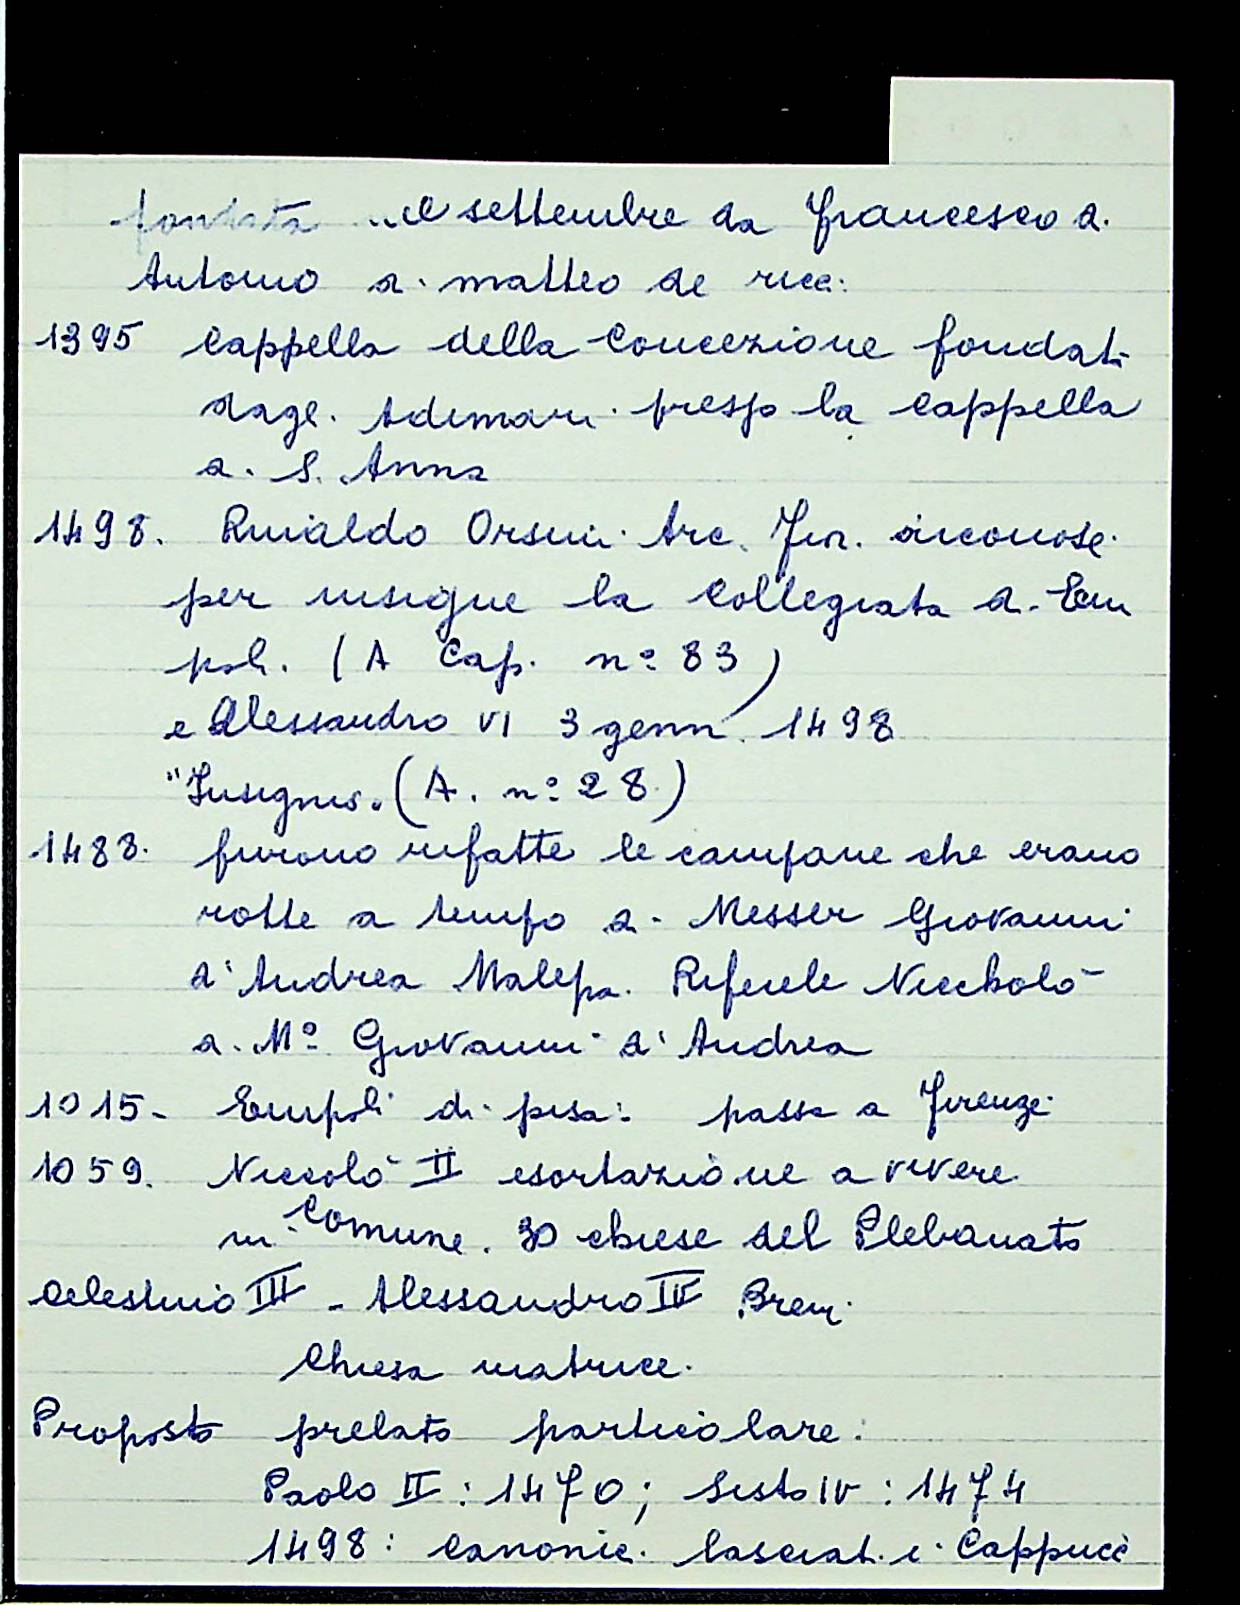 fondata ..il settembre da Francesco d.
Antonio d. Matteo de ricc.
1395 Cappella della Concezione fondat.
dagl. Adimari. presso la cappella
d. S. Anna
1498. Rinaldo Orsini. Arc. Fir. riconosc.
per insigne la Collegiata d. Em
poli. (A Cap. n° 83)
e Alessandro VI 3 genn. 1498
"Insignis. (A. n° 28)
1488. furono rifatte le campane che erano
rotte a tempo d. Messer Giovanni
d'Andrea Malepa. Rifecele Niccholò
d. M° Giovanni d'Andrea
1015- Empoli di pisa: passa a Firenze
1059. Niccolò II esortazione a vivere
in comune. 30 chiese del Plebanato
Celestino III - Alessandro IV Brevi.
Chiesa matrice.
Proposto prelato particolare:
Paolo II : 1470 ; Sisto IV : 1474
1498 : canonic. lasciat. i. Cappucc